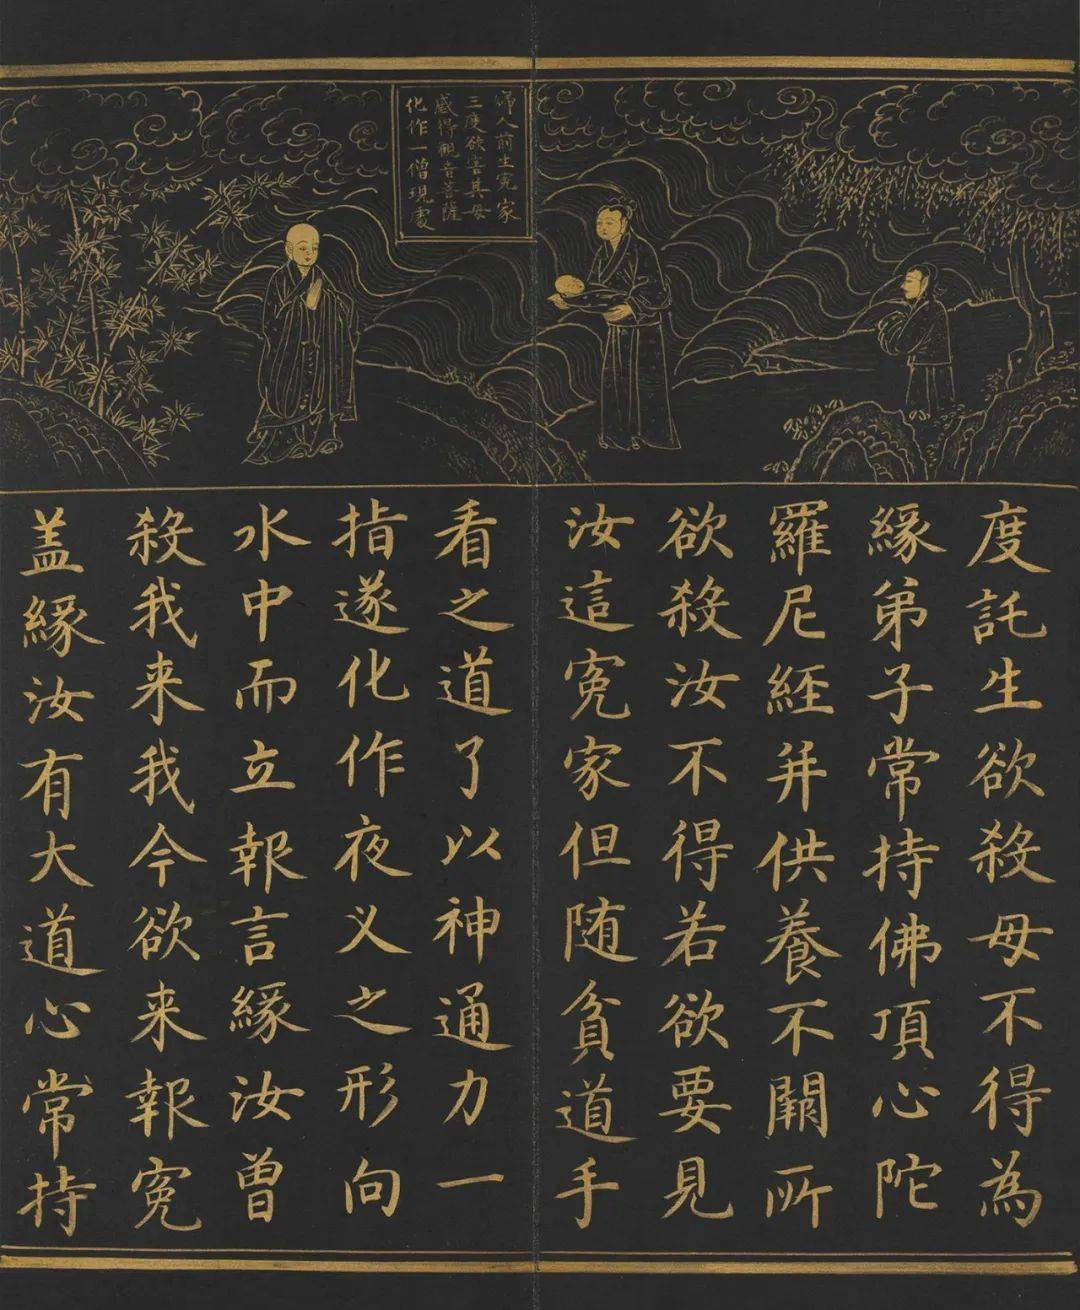 婦人前生寃家
三度欲害其母
感得觀音菩薩
化作一僧現處
度託生欲殺母不得為
緣弟子常持佛頂心陀
羅尼經并供養不闕所
欲殺汝不得若欲要見
汝這寃家但随貧道手
看之道了以神通力一
指遂化作夜义之形向
水中而立報言緣汝曾
殺我来我今欲来報寃
盖緣汝有大道心常持